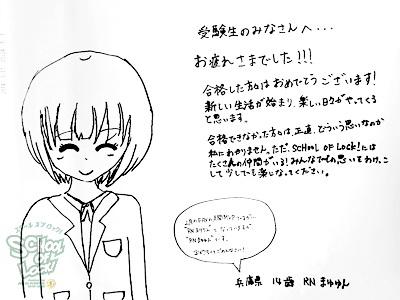 受験生のみなさんへ・・・
お疲れさまでした!!!
合格した方々はおめでとうございます!
新しい生活が始まり、楽しい日々がやってくる
と思います。
合格できなかった方々は、正直、どういう思いなのか
私にわかりません。ただ、SCHOOL OF LOCK!には
たくさんの仲間がいる!みんなでその思いをわけっこ
して少しでも楽になってください。
兵庫県 14歳 RN まゆゆん
スクールオブロック!
SCHOOL
OF
LOCK!